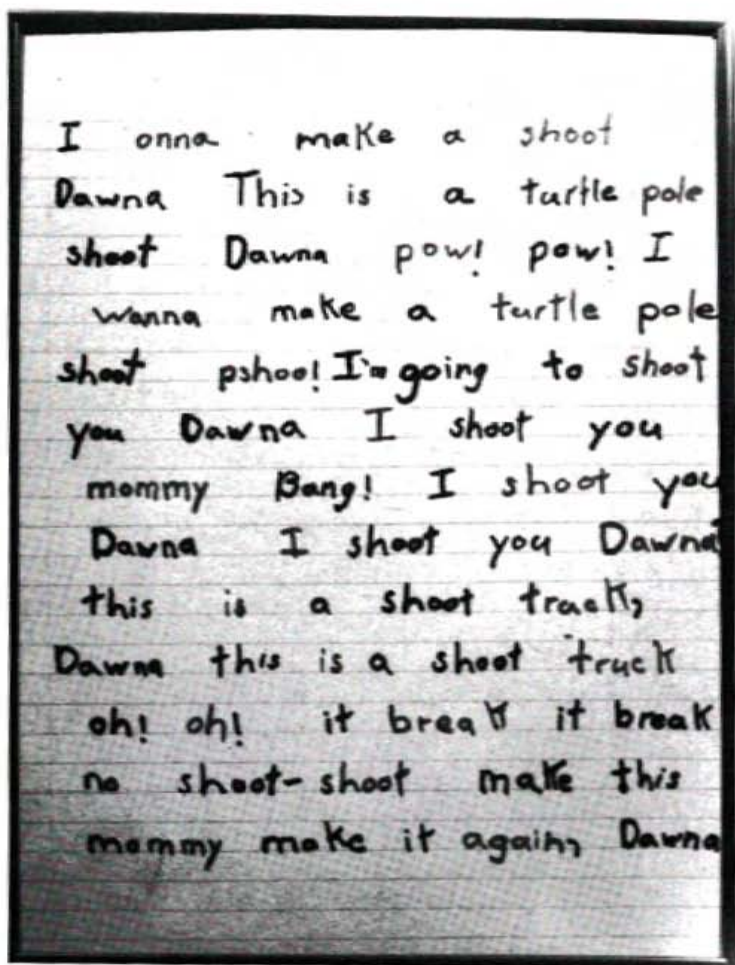 I onna make a shoot
Dawna This is a turtle pole
shoot Dawna pow! pow! I
wanna make a turtle pole
shoot pshoo! I'm going to shoot
you Dawna I shoot you
mommy Bang! I shoot you
Dawna I shoot you Dawna
this is a shoot track,
Dawna this is a shoot truck
oh! oh! it break it break
no shoot-shoot make this
mommy make it again, Dawna